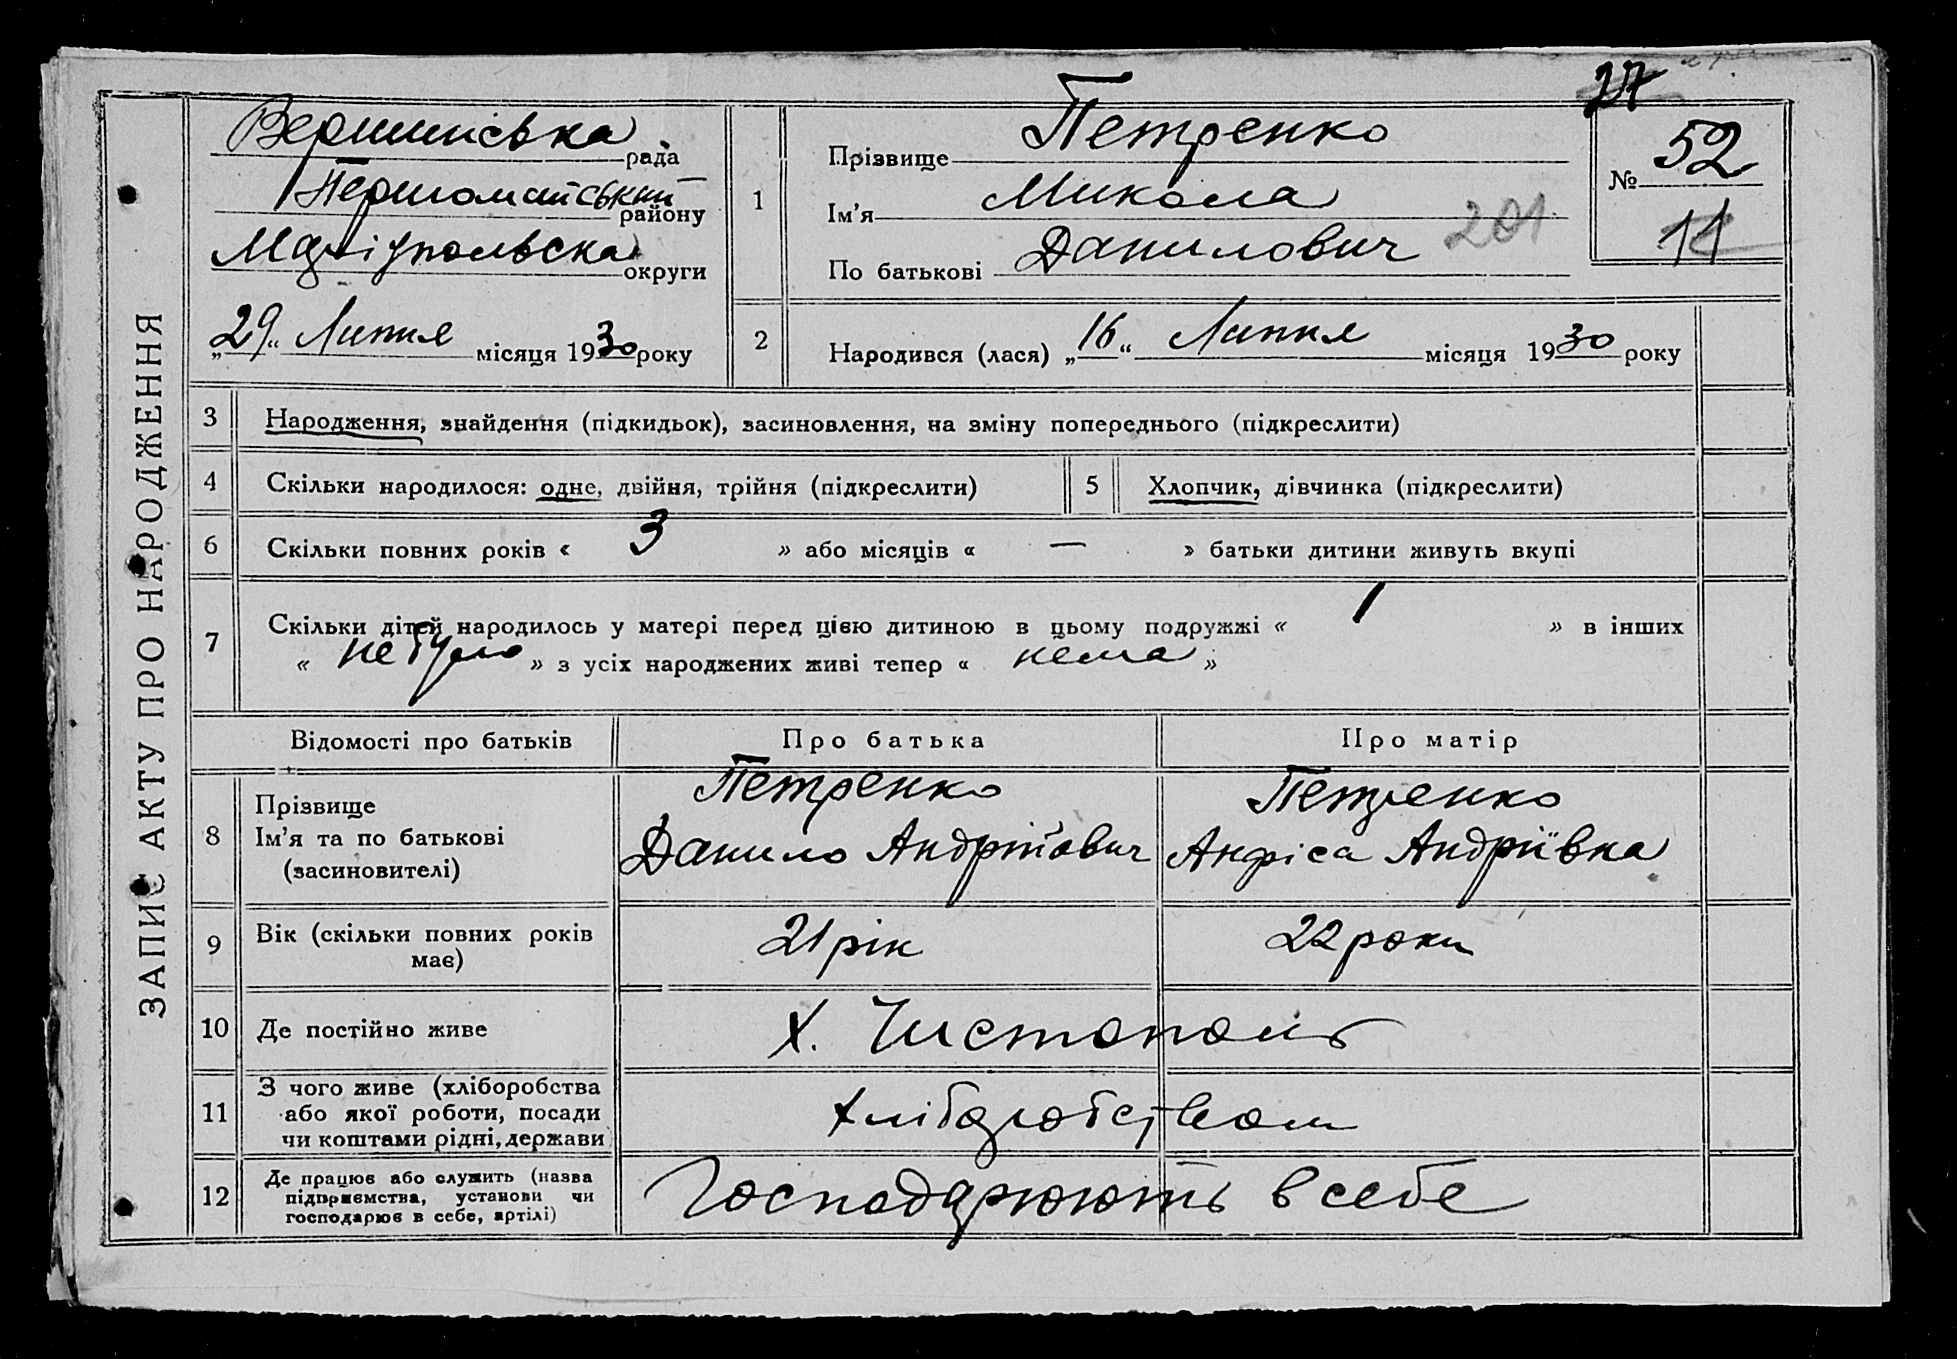 27
ЗАПИС АКТУ ПРО НАРОДЖЕННЯ
Вершинська рада
Першомайський району
Маріупольска округи
„29“ Липня місяця 1930 року
1
Прізвище Петренко
Ім’я Микола
По батькові Данилович
201
№ 52
11
2
Народився (лася) „16“ Липня місяця 1930 року
3 Народження, знайдення (підкидьок), засиновлення, на зміну попереднього (підкреслити)
4 Скільки народилося: одне, двійня, трійня (підкреслити)
5 Хлопчик, дівчинка (підкреслити)
6 Скільки повних років « 3 » або місяців « — » батьки дитини живуть вкупі
7 Скільки дітей народилось у матері перед цією дитиною в цьому подружжі « 1 » в інших
« не було » з усіх народжених живі тепер « нема »
Відомості про батьків Про батька Про матір
8 Прізвище
Ім’я та по батькові
(засиновителі)
Петренко
Данило Андрійович
Петренко
Анфіса Андріївна
9 Вік (скільки повних років
має)
21 рік
22 роки
10 Де постійно живе
Х. Чистополь
11 З чого живе (хліборобства
або якої роботи, посади
чи коштами рідні, держави
Хліборобством
12 Де працює або служить (назва
підприємства, установи чи
господарює в себе, артілі)
Господарюють в себе